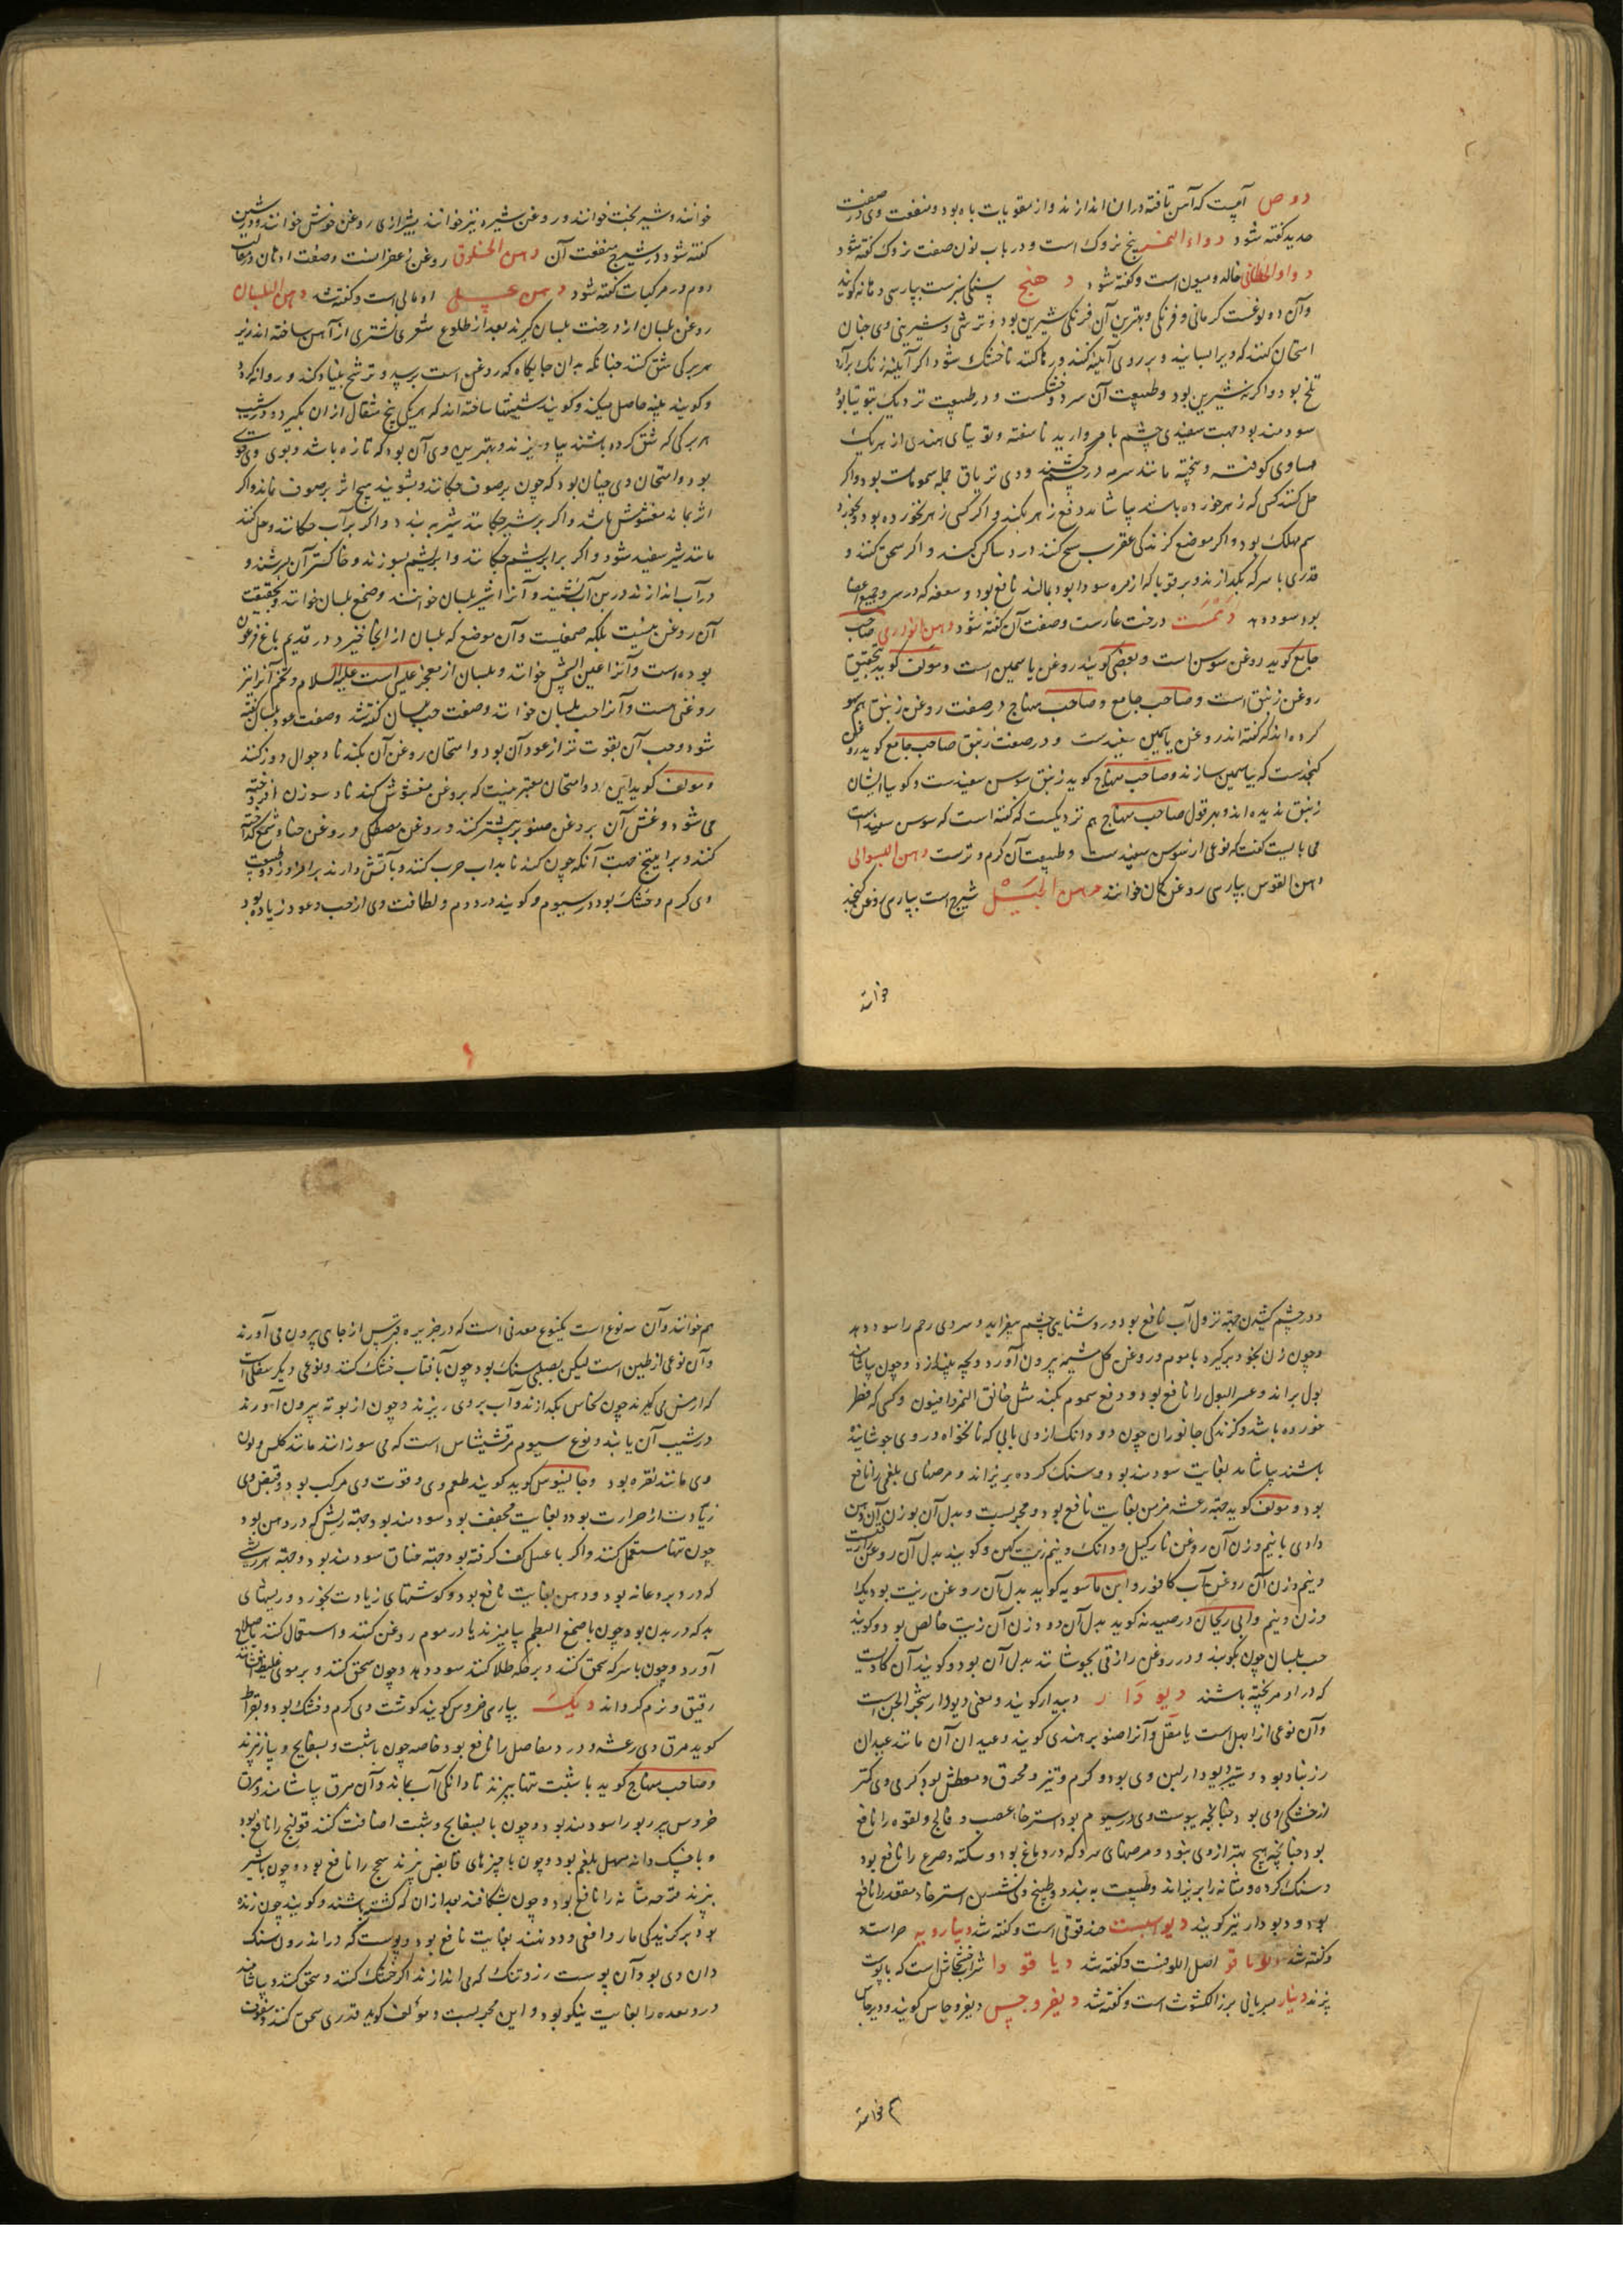 دوص آبیست که آهن تافته در ان اندازند و از مقویات باه بود و منفعت وی در صفت
حدید کفته شود دواء البنج بزوک است و در باب نون صفت نزوک کفته شود
خاله و میون است و کفته شود دهنج سنکی سبزست بپارسی دهانه کویند
و آن دو نوعست کرمانی و فرنکی و بهترین آن فرنکی شیرین بود و ترشی و شیرینی وی چنان
امتحان کنند که ویرا بسایند و بر روی آینه کنند و رها کنند تا خشک شود اکر آینه زنک برآرد
تلخ بود و اکر نه شیرین بود و طبیعت آن سرد و خشکست و در طبیعت نزدیک بتوتیا بود
سودمند بود جهت سفیدی چشم با مروارید ناسفته و توتیای هندی از هر یک
مساوی کوفته و بیخته مانند سرمه در چشم کشند و وی تریاق جمله سمومات بود و اکر
حل کنند کسی که زهر خورده باشد بیاشامد دفع زهر بکند و اکر کسی زهر نخورده بود و بخورد
سم مهلک بود و اکر موضع کزندکی عقرب مسح کنند درد ساکن کند و اکر سحق کنند و
قدری با سرکه بکدازند و بر قوبا که از مره سودا بود بمالند نافع بود و سعفه که در سر و جمیع اعضا
بود سود دهد دهمست درخت غارست و صفت آن کفته شود دهن صاحب
جامع کوید روغن سوسن است و بعضی کویند روغن یاسمین است و مؤلف کوید بتحقیق
روغن زنبق است و صاحب جامع و صاحب منهاج در صفت روغن زنبق هم سهو
کرده اند که کفته اند روغن یاسمین سفیدست و در صفت زنبق صاحب جامع کوید روغن
کنجدست که بیاسمین سازند و صاحب منهاج کوید زنبق سوسن سفیدست و کویا ایشان
زنبق ندیده اند و بر قول صاحب منهاج هم نزدیکست که کفته است که سوسن سفیدست
می بایست کفت که نوعی از سوسن سفیدست و طبیعت آن کرم و ترست دهن السوالی
دهن القوس بپارسی روغن کمان خوانند دهن الجبل شیرج است بپارسی روغن کنجد
خوانند
خوانند و شیر بخت خوانند و روغن شیره نیز خوانند بشیرازی روغن خوش خوانند و در شین
کفته شود در شیرج منفعت آن دهن الخلوق روغن زعفرانست و صفت ادهان در مقالت
دوم در مرکبات کفته شود دهن عسل اومالی است و کفته شد دهن البلسان
روغن بلسان از درخت بلسان کیرند بعد از طلوع شعری نشتری از آهن ساخته اند زیر
هر برکی شق کنند چنانکه بدان جایکاه که روغن است برسد و ترشح بنیاد کند و روانه کردد
و کویند پنبه حاصل میکند و کویند شیشها ساخته اند که هر یکی پنج مثقال از ان بکیرد و در شیب
هر برکی که شق کرده باشند بیاویزند و بهترین وی آن بود که تازه باشد و بوی وی قوی
بود و امتحان وی چنان بود که چون بر صوف چکانند و بشویند هیچ اثر بر صوف نماند و اکر
اثر بماند مغشوش باشد و اکر بر شیر چکانند شیر به بندد و اکر بر آب چکانند و حل کنند
مانند شیر سفید شود و اکر بر ابریشم چکانند و ابریشم بسوزند و خاکستر آن بسرشند و
در آب اندازند در بن آب نشیند و آنرا شیر بلسان خوانند و صمغ بلسان خوانند و بحقیقت
آن روغن نیست بلکه صمغیست و آن موضع که بلسان از انجا خیزد در قدیم باغ فرعون
بوده است و آنرا عین الشمس خوانند و بلسان از معجز عیسی است علیه السلام و تخم آنرا نیز
روغنی هست و آنرا حب بلسان خوانند و صفت حب بلسان کفته شد و صفت عود بلسان کفته
شود و حب آن بقوت تر از عود آن بود و امتحان روغن آن بکنند تا دو جوال دوز کنند
و مؤلف کوید این دو امتحان معتبر نیست که بروغن مغشوش کنند تا دو سوزن افروخته
می شود و غش آن بروغن صنوبر بیشتر کنند و روغن مصطکی و روغن حنا و شمع کداخته
کنند و بر آتش دارند بر افروزد و طبیعت
وی کرم و خشک بود در سیوم و کویند در دوم و لطافت وی از حب و عود زیاده بود
و در چشم کشیدن جهت نزول آب نافع بود و روشنایی چشم بیفزاید و سردی رحم را سود دهد
و چون زن بخود برکیرد با موم و روغن کل مشیمه بیرون آورد و بچه بیندازد و چون بیاشامند
بول براند و عسر البول را نافع بود و دفع سموم بکند مثل خانق النمر و افیون و کسی که فطر
خورده باشد و کزندکی جانوران چون دو دانک از وی بابی که نانخواه در وی جوشانیده
باشند بیاشامد بغایت سودمند بود و سنک کرده بریزاند و مرضهای بلغمی را نافع
بود و مؤلف کوید جهت رعشه مزمن بغایت نافع بود و مجربست و بدل آن بوزن آن دهن
دادی با نیم وزن آن روغن نارکیل و دانک و نیم زیت کهن و کویند بدل آن روغن
و نیم وزن آن روغن آب کافور و ابن ماسویه کوید بدل آن روغن زیت بود یک
وزن و نیم و ابی ریحان در صیدنه کوید بدل آن دو وزن آن زیت خالص بود و کویند
حب بلسان چون بکوبند و در روغن رازقی بجوشانند بدل آن بود و کویند آن کادیست
که در او مربخته باشند دیودار دبیدار کویند و معنی دیودار شجر الجن است
و آن نوعی از ابهل است یا مقل و آنرا صنوبر هندی کویند و عیدان آن مانند عیدان
زرنباد بود و شیر دیودار لبن وی بود و کرم و تیز و محرق و معطش بود کرمی وی کمتر
از خشکی وی بود چنانچه یبوست وی در سیوم بود استرخاء عصب و فالج و لقوه را نافع
بود چنانچه هیچ بهتر از وی نبود و مرضهای سرد که در دماغ بود و سکته و صرع را نافع بود
و سنک کرده و مثانه را بریزاند و طبیعت به بندد و در طبیخ وی نشستن استرخاء مقعد را نافع
بود و دیودار نیز کویند دیواسبست حندقوقی است و کفته شد دیبارویه حراست
و کفته شد اصل اللوفست و کفته شد دیاقودا شراب خشخاش است که با پوست
پزند دینار سریانی بزر الکشوث است و کفته شد دیفروجس دیفروجاس کویند و دیرجاس
هم خوانند
هم خوانند و آن سه نوع است یکنوع معدنی است که در جزیره قبرس از جای بیرون می آورند
و آن نوعی از طین است لیکن بصلبی سنک بود چون بآفتاب خشک کنند و نوعی دیکر سفلیست
که از مس می کیرند چون نحاس بکدازند و آب بر وی ریزند و چون از بوته بیرون آورند
در شیب آن یابند و نوع سیوم مرقشیشاس است که می سوزانند مانند کلس و لون
وی مانند نقره بود و جالینوس کوید کویند طعم وی و قوت وی مرکب بود و قبض وی
زیادت از حرارت بود و بغایت مجفف بود سودمند بود جهته ریش که در دهن بود
چون تنها مستعمل کنند و اکر با عسل کف کرفته بود جهته خناق سودمند بود و جهته هر ریشی
که در دبر و عانه بود و دهن بغایت نافع بود و کوشتهای زیادت بخورد و ریشهای
بد که در بدن بود چون با صمغ البطم بیامیزند یا در موم روغن کنند و استعمال کنند باصلاح
آورد و چون با سرکه سحق کنند و بر حکه طلا کنند سود دهد و چون سحق کنند و بر موی غلیظ افشانند
رقیق و نرم کرداند دیک بپارسی خروس کویند کوشت وی کرم و خشک بود و بقراط
کوید مرق وی رعشه و درد مفاصل را نافع بود خاصه چون با شبت و بسفایج و پیاز پزند
و صاحب منهاج کوید با شبت تنها بپزند تا دانکی آب بماند و آن مرق بیاشامند و مرق
خروس پیر ربو را سودمند بود و چون با بسفایج و شبت اضافت کنند قولنج را نافع بود
و با خسک دانه مسهل بلغم بود و چون با چیزهای قابض پزند سحج را نافع بود و چون با شیر
پزند قرحه مثانه را نافع بود و چون بشکافند بعد از ان که کشته باشند و کویند چون زنده
بود بر کزیدکی مار و افعی و دد نهند بغایت نافع بود و پوست که در اندرون سنک
دان وی بود آن پوست رزد تنک که می اندازند اکر خشک کنند و سحق کنند و بیاشامند
درد معده را بغایت نیکو بود و این مجربست و مؤلف کوید قدری سحق کنند و سفوف